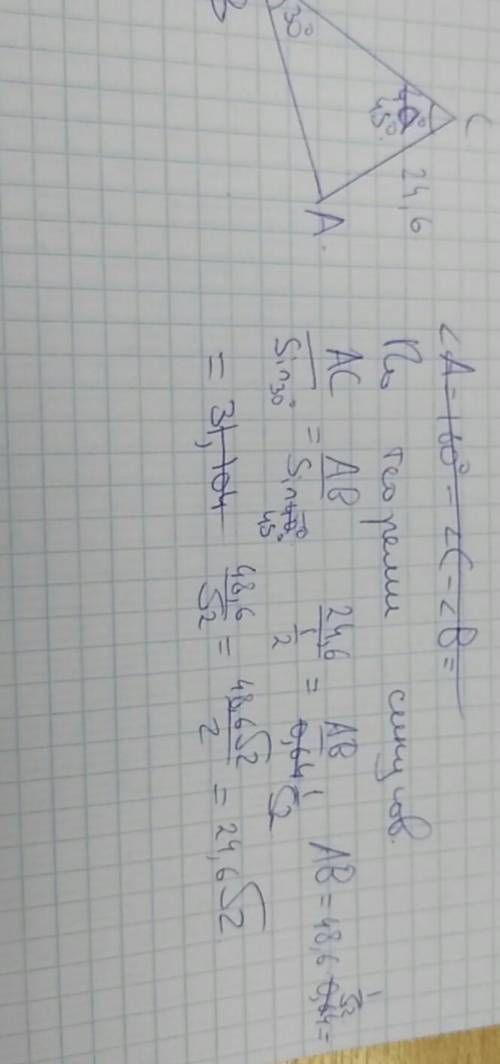 B
30°
C
45°
24,6
A
∠A = 180° - ∠C - ∠B =
По теореме синусов
AC/Sin30° = AB/Sin45°  24,6/(1/2) = AB/(1/√2)  AB = 48,6 · 1/√2 =
= 48,6/√2 = 48,6√2/2 = 24,6√2